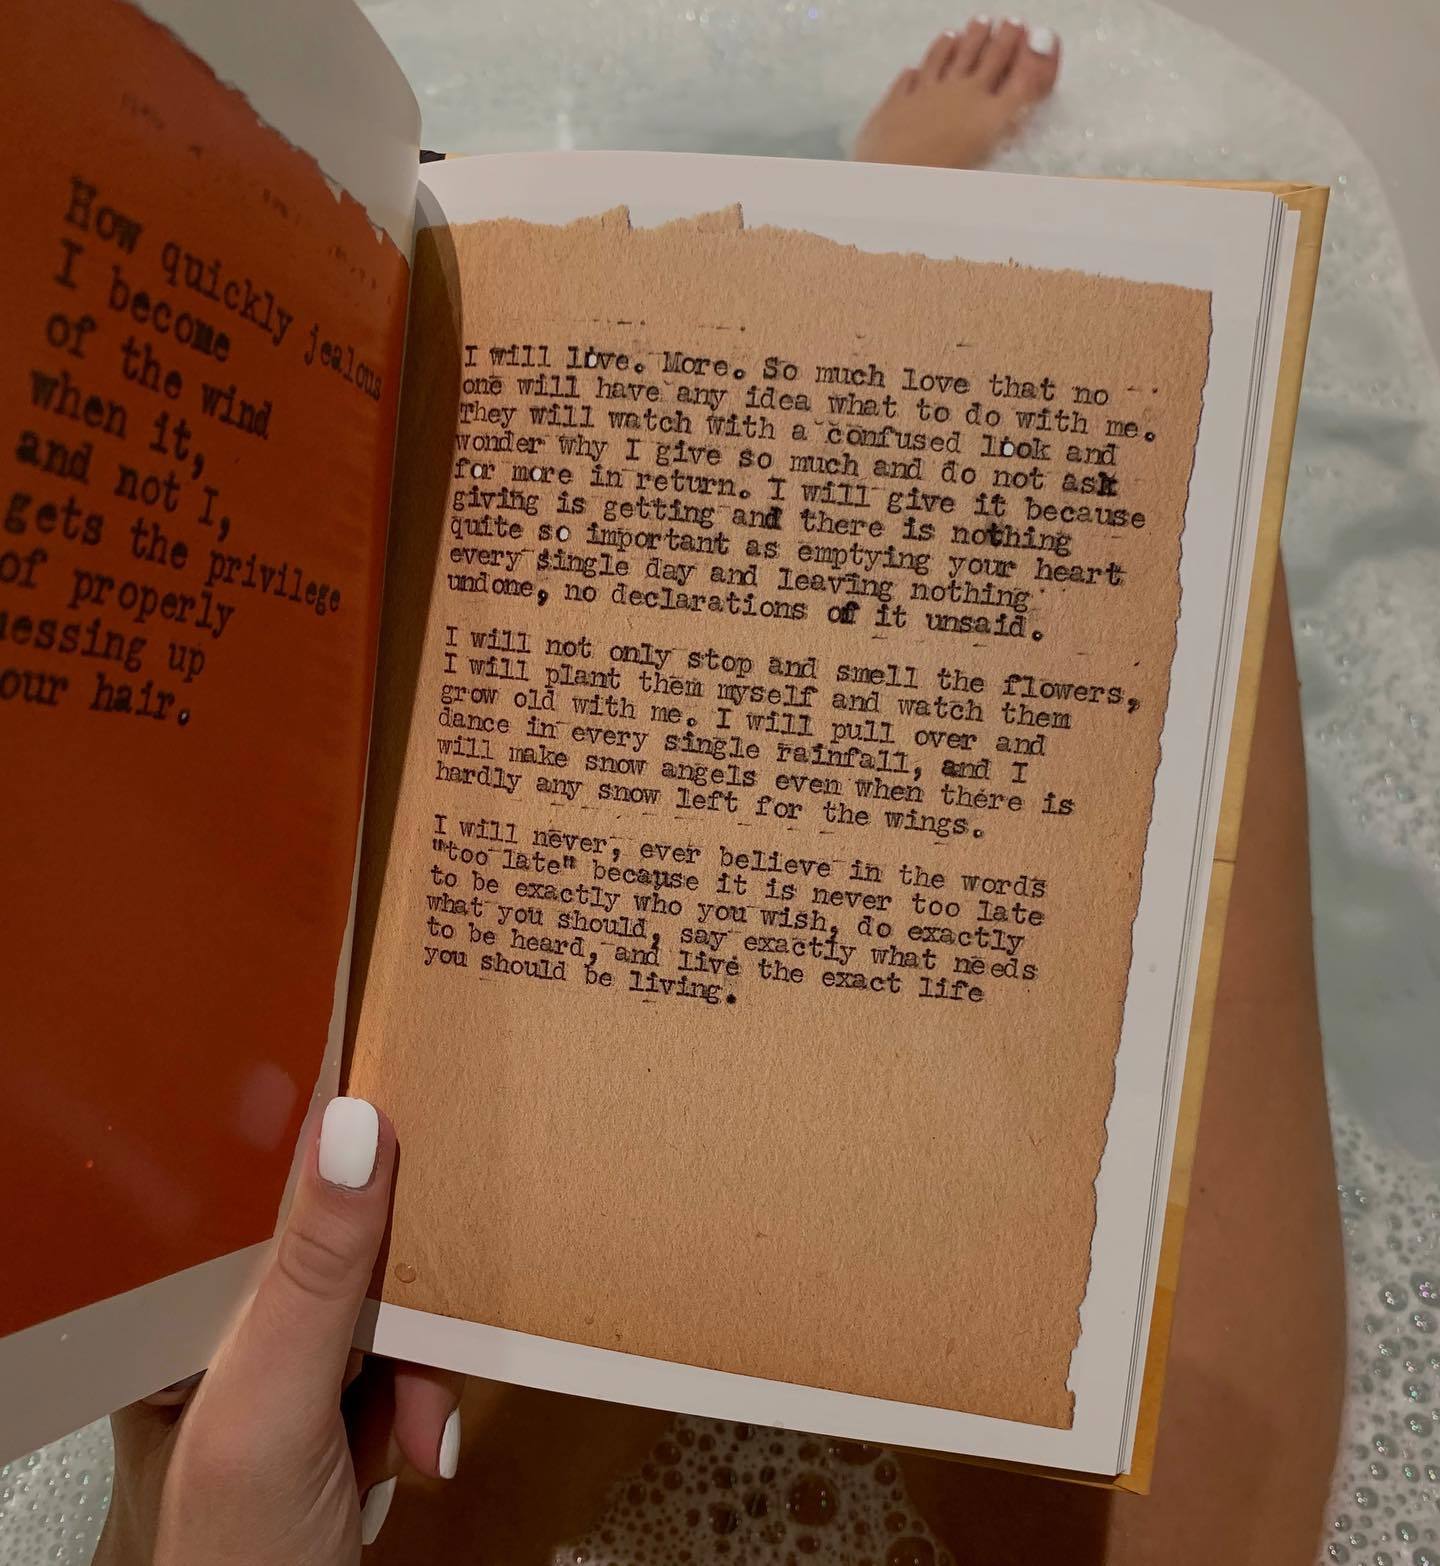 How quickly jealous
I become
of the wind
when it,
and not I,
gets the privilege
of properly
essing up
our hair.
I will love. More. So much love that no
one will have any idea what to do with me.
They will watch with a confused look and
wonder why I give so much and do not ask
for more in return. I will give it because
giving is getting and there is nothing
quite so important as emptying your heart
every single day and leaving nothing
undone, no declarations of it unsaid.
I will not only stop and smell the flowers,
I will plant them myself and watch them
grow old with me. I will pull over and
dance in every single rainfall, and I
will make snow angels even when there is
hardly any snow left for the wings.
I will never, ever believe in the words
"too late" because it is never too late
to be exactly who you wish, do exactly
what you should, say exactly what needs
to be heard, and live the exact life
you should be living.